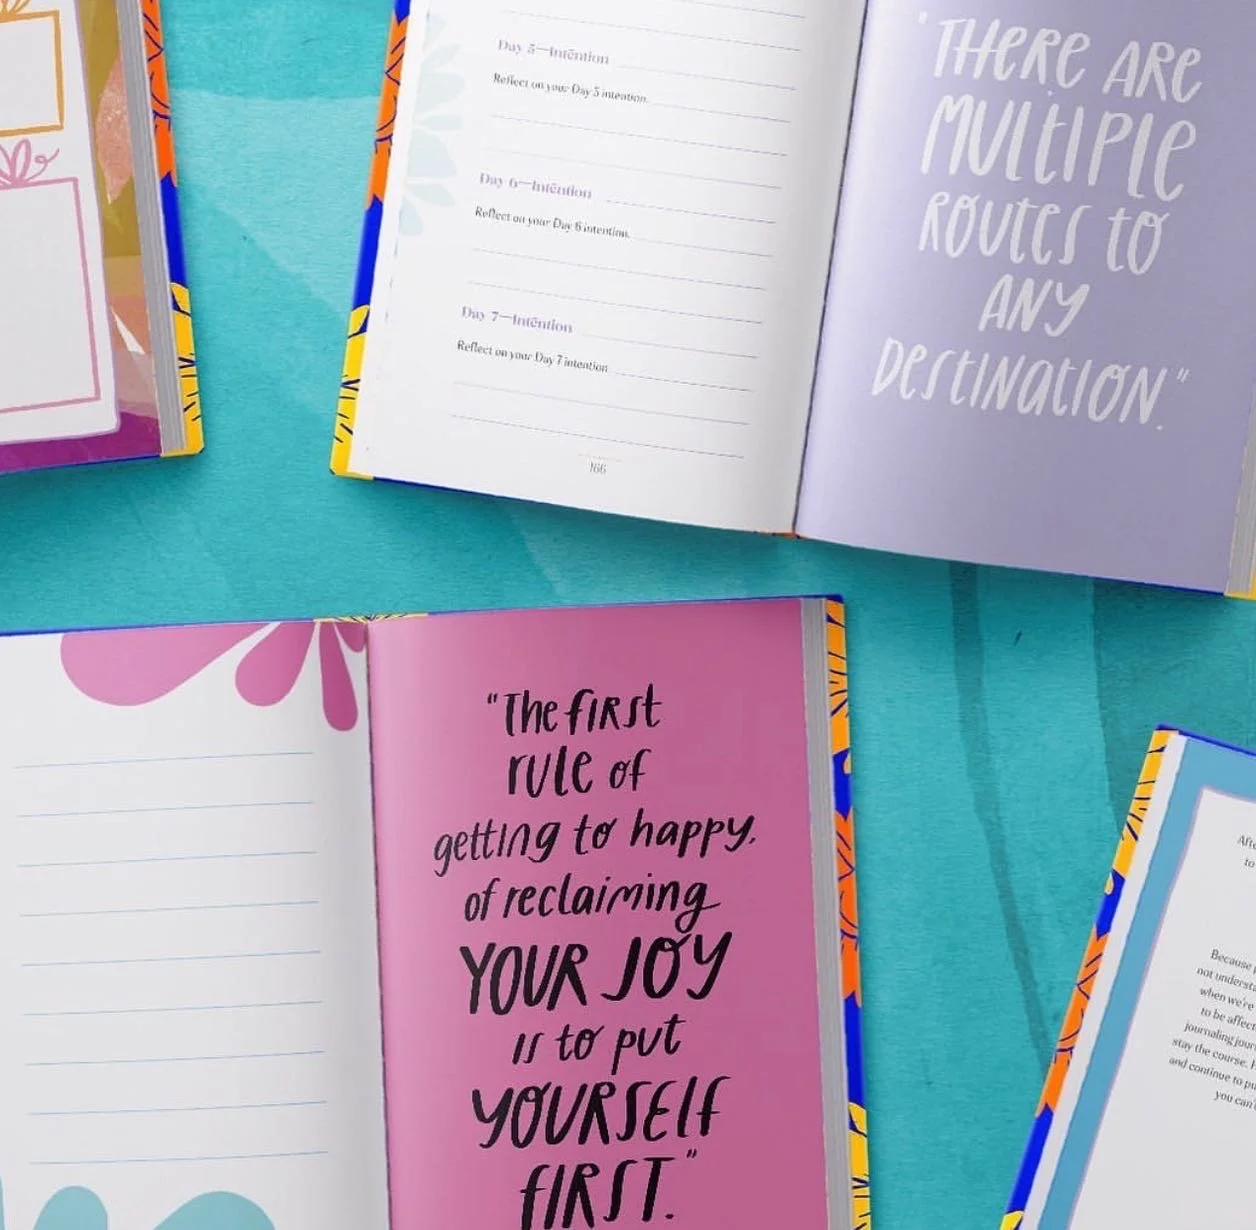 Day 5—Intention
Reflect on your Day 5 intention.
Day 6—Intention
Reflect on your Day 6 intention.
Day 7—Intention
Reflect on your Day 7 intention
166
THERE ARE
MULTIPLE
ROUTES TO
ANY
DESTINATION."
"The first
rule of
getting to happy,
of reclaiming
YOUR JOY
is to put
YOURSELF
FIRST."
to
Because
not understa
when we're
to be affec
journaling jour
stay the course.
and continue to pu
you can'